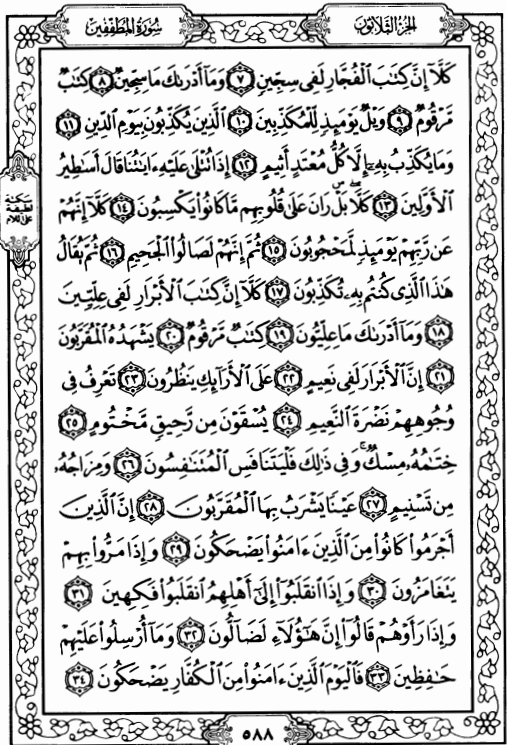 سُورَةُ المُطَفِّفِين
الجُزْءُ الثَّلَاثُونَ
كَلَّآ إِنَّ كِتَٰبَ ٱلْفُجَّارِ لَفِى سِجِّينٍ ٧ وَمَآ أَدْرَىٰكَ مَا سِجِّينٌ ٨ كِتَٰبٌ
مَّرْقُومٌ ٩ وَيْلٌ يَوْمَئِذٍ لِّلْمُكَذِّبِينَ ١٠ ٱلَّذِينَ يُكَذِّبُونَ بِيَوْمِ ٱلدِّينِ ١١
وَمَا يُكَذِّبُ بِهِۦٓ إِلَّا كُلُّ مُعْتَدٍ أَثِيمٍ ١٢ إِذَا تُتْلَىٰ عَلَيْهِ ءَايَٰتُنَا قَالَ أَسَٰطِيرُ
ٱلْأَوَّلِينَ ١٣ كَلَّا ۖ بَلْ ۜ رَانَ عَلَىٰ قُلُوبِهِم مَّا كَانُوا۟ يَكْسِبُونَ ١٤ كَلَّآ إِنَّهُمْ
سكتة
لطيفة
على اللام
عَن رَّبِّهِمْ يَوْمَئِذٍ لَّمَحْجُوبُونَ ١٥ ثُمَّ إِنَّهُمْ لَصَالُوا۟ ٱلْجَحِيمِ ١٦ ثُمَّ يُقَالُ
هَٰذَا ٱلَّذِى كُنتُم بِهِۦ تُكَذِّبُونَ ١٧ كَلَّآ إِنَّ كِتَٰبَ ٱلْأَبْرَارِ لَفِى عِلِّيِّينَ
١٨ وَمَآ أَدْرَىٰكَ مَا عِلِّيُّونَ ١٩ كِتَٰبٌ مَّرْقُومٌ ٢٠ يَشْهَدُهُ ٱلْمُقَرَّبُونَ
٢١ إِنَّ ٱلْأَبْرَارَ لَفِى نَعِيمٍ ٢٢ عَلَى ٱلْأَرَآئِكِ يَنظُرُونَ ٢٣ تَعْرِفُ فِى
وُجُوهِهِمْ نَضْرَةَ ٱلنَّعِيمِ ٢٤ يُسْقَوْنَ مِن رَّحِيقٍ مَّخْتُومٍ ٢٥
خِتَٰمُهُۥ مِسْكٌ ۚ وَفِى ذَٰلِكَ فَلْيَتَنَافَسِ ٱلْمُتَنَٰفِسُونَ ٢٦ وَمِزَاجُهُۥ
مِن تَسْنِيمٍ ٢٧ عَيْنًا يَشْرَبُ بِهَا ٱلْمُقَرَّبُونَ ٢٨ إِنَّ ٱلَّذِينَ
أَجْرَمُوا۟ كَانُوا۟ مِنَ ٱلَّذِينَ ءَامَنُوا۟ يَضْحَكُونَ ٢٩ وَإِذَا مَرُّوا۟ بِهِمْ
يَتَغَامَزُونَ ٣٠ وَإِذَا ٱنقَلَبُوٓا۟ إِلَىٰٓ أَهْلِهِمُ ٱنقَلَبُوا۟ فَكِهِينَ ٣١
وَإِذَا رَأَوْهُمْ قَالُوٓا۟ إِنَّ هَٰٓؤُلَآءِ لَضَآلُّونَ ٣٢ وَمَآ أُرْسِلُوا۟ عَلَيْهِمْ
حَٰفِظِينَ ٣٣ فَٱلْيَوْمَ ٱلَّذِينَ ءَامَنُوا۟ مِنَ ٱلْكُفَّارِ يَضْحَكُونَ ٣٤
٥٨٨